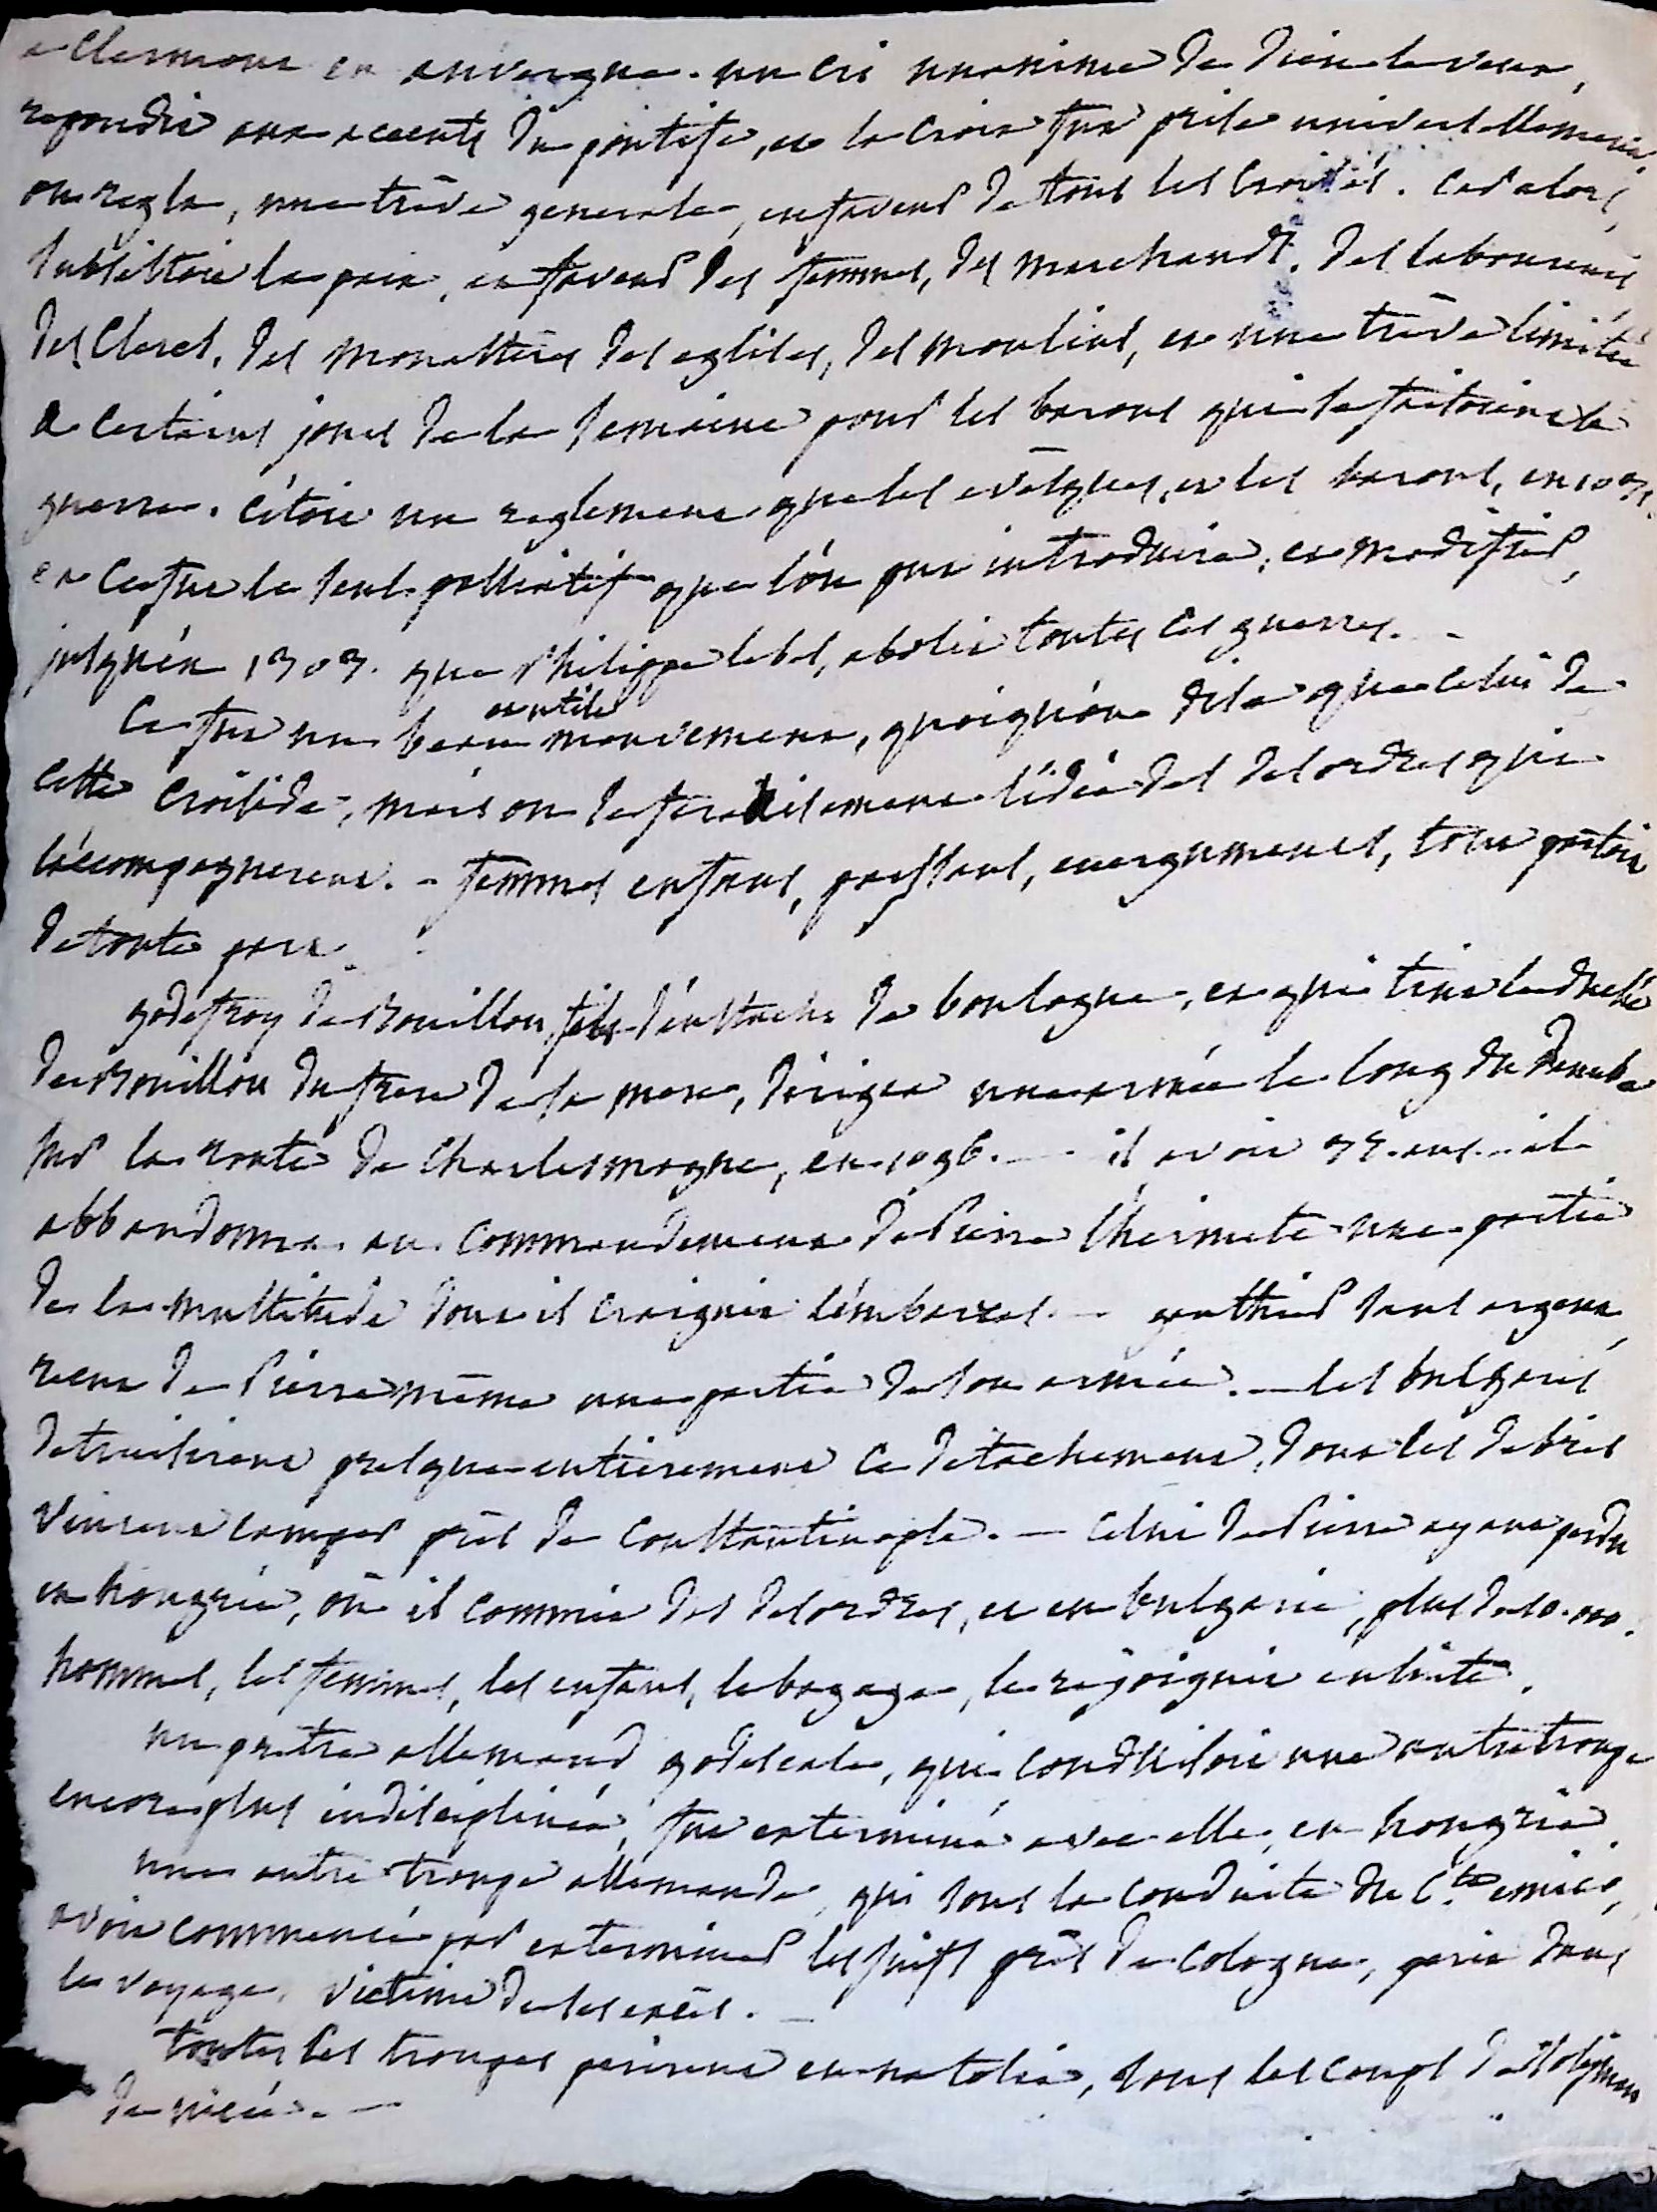 a Clermont en auvergne. un cri unanime de Dieu le veut,
repondit aux accents du pontife, et la croix fut prise universellement.
on regla, une trêve generale, en faveur de tous les croisés. Car alors,
subsistoit la paix, en faveur des femmes, des marchands, des laboureurs
des Clercs, des monastères des eglises, des moulins, et une trêve limitée
a certains jours de la semaine pour les barons qui se faisoient la
guerre. C'étoit un reglement que les evêques, et les barons, en
et ce fut le seul palliatif que l'on put introduire, et modifier,
jusqu'en 1303. que Philippe le bel, abolit toutes les guerres. -
Ce fut un beau et utile mouvement, quoiqu'on dise que celui de
cette croisade, mais on se fera aisement l'idée des desordres qui
l'accompagnerent. - femmes enfans, paysans, energumenes, tout partoit
de toute part.
godefroy de Bouillon fils d'eustache de boulogne, et qui tint le duché
de Bouillon du frere de sa mere, dirigea une armée le long du Danube
sur la route de Charlesmagne, en 1096. - il avoit 35. ans. - il
abbandonna au commandement de Pierre l'hermite une partie
de la multitude dont il craignit l'embarras. - gauthier sans argent,
recut de Pierre même une partie de son armée. - les bulgares
detruisirent presque entierement ce detachement, dont les debris
vinrent camper près de Constantinople. - Celui de Pierre ayant perdu
en hongrie, où il commit des desordres, et en bulgarie, plus de 10.000.
hommes, les femmes, les enfans, le bagage, le rejoignit ensuite.
un prêtre allemand godescale, qui conduisoit une autre troupe
encore plus indisciplinée, fut exterminé avec elle, en hongrie.
une autre troupe allemande, qui sous la conduite du C.te emico,
avoit commencé par exterminer les juifs près de Cologne, perit dans
le voyage, victime de ses excès. -
toutes les troupes perirent en natolie, sous les coups de Soliman
de nicée. -